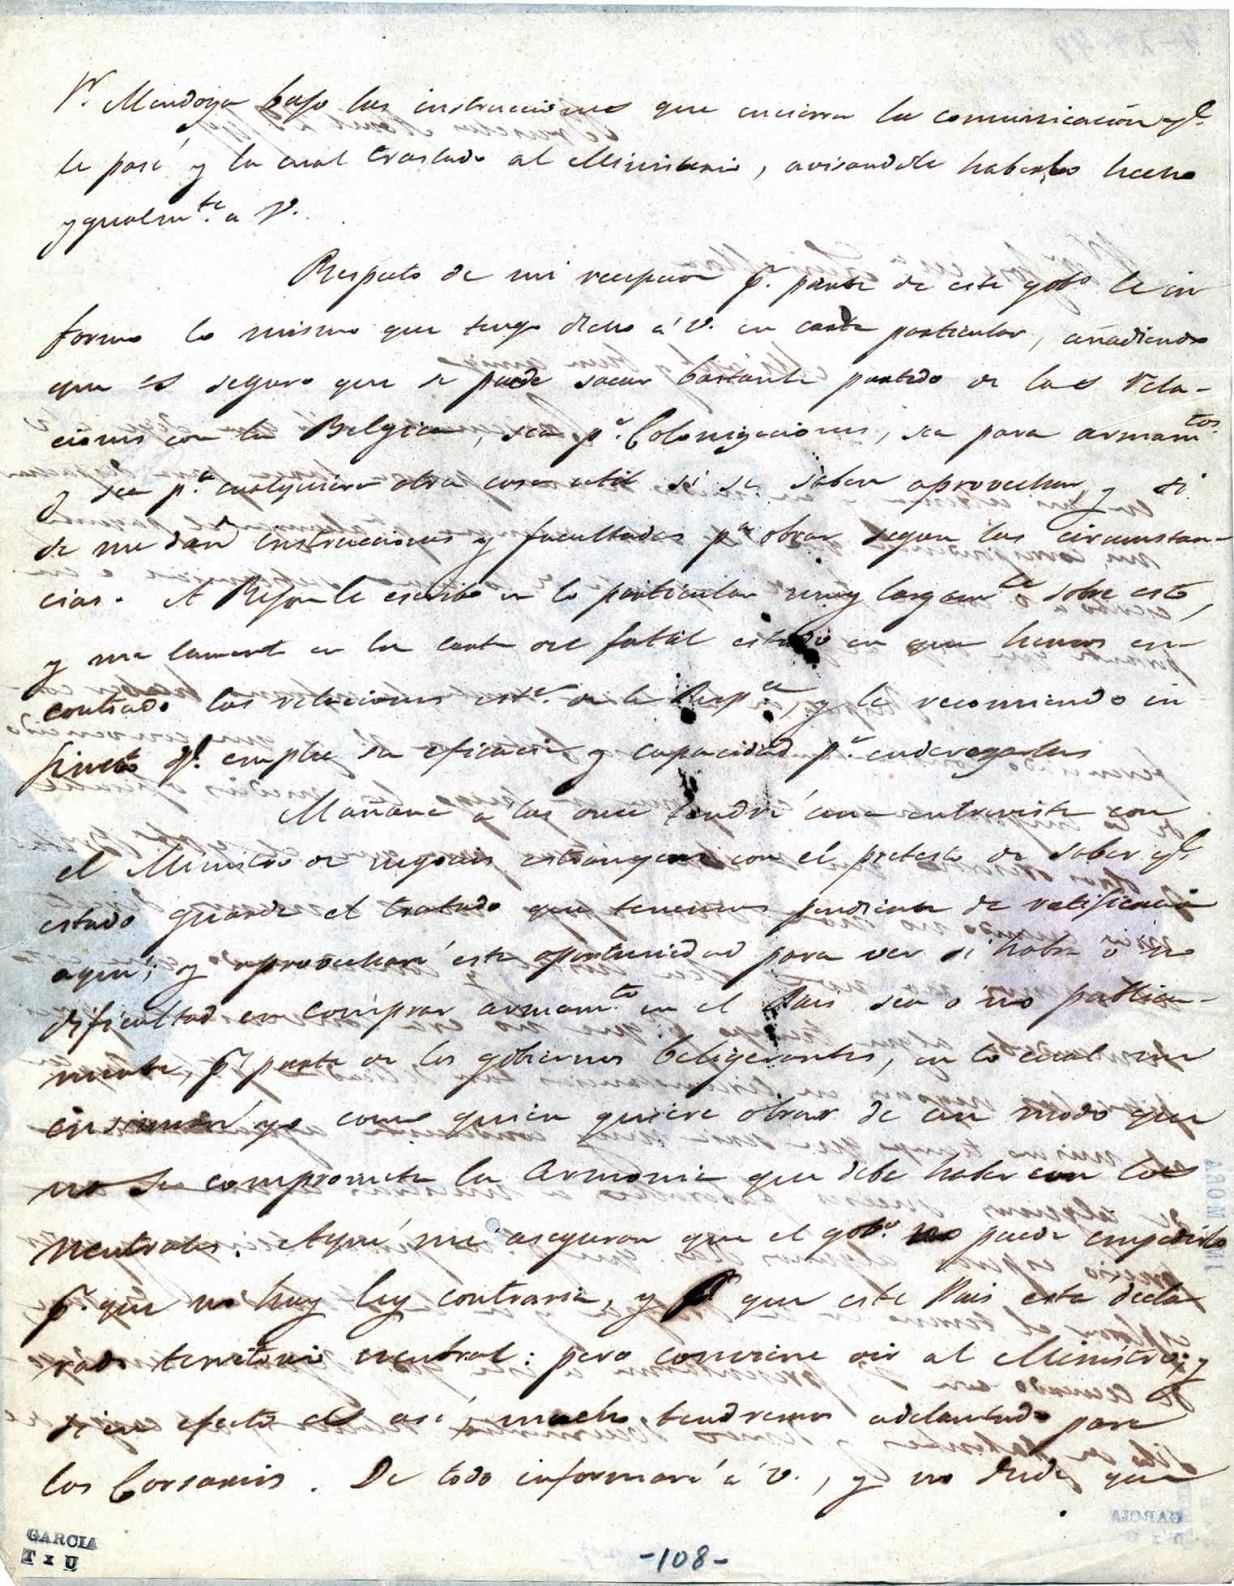 Sr. Mendoza bajo las instrucciones que encierra la comunicación qe.
le pasé y la cual traslado al Ministerio, avisandole haberlo hecho
ygualmte. a V.
Respecto de mi recepcion pr. parte de este gobo. le in
formo lo mismo que tengo dicho á V. en carta particular, añadiendo
que es seguro que se puede sacar bastante partido de las rela-
ciones con la Bélgica, sea pa. Colonizaciones, sea para armamtos.
y sea pa. cualquiera otra cosa util si se saben aprovechar, y si
se me dan instrucciones y facultades pa. obrar segun las circunstan-
cias. A Rejon le escribo en lo particular muy largamte. sobre esto,
y me lamento en la carta del fatal estado en que hemos en-
contrado las relaciones estr. de la Repca., y le recomiendo in
finito qe. emplee su eficacia y capacidad pa. enderezarlas
Mañana á las once tendré una entrevista con
el Ministro de negocios estrangeros con el pretesto de saber qe.
estado guarda el tratado que tenemos pendiente de ratificacion
aquí; y aprovecharé esta oportunidad para ver si habrá ó no
dificultad en comprar armamto. en el Pais sea ó no publica-
mente pr. parte de los gobiernos beligerantes, en lo cual me
insinuaré yo como quien quiere obrar de un modo que
no se comprometa la armonia que debe haber con los
neutrales. Aquí me aseguran que el gobo. no puede impedirlo
pr. que no hay ley contraria, y que este Pais esta decla
rado territorio neutral: pero conviene oir al Ministro; y
si en efecto es así, mucho tendremos adelantado para
los Corsarios. De todo informaré á V., y no dude que
GARCIA
T x U
-108-